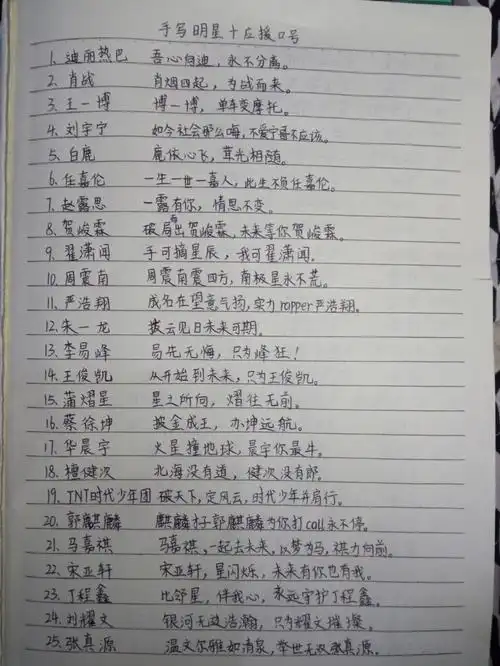 手写明星+应援口号
1、迪丽热巴 吾心向迪，永不分离。
2、肖战 肖烟四起，为战而来。
3、王一博 博一博，单车变摩托。
4、刘宇宁 如今社会那么嗨，不爱宁哥不应该。
5、白鹿 鹿依心飞，茸光相随。
6、任嘉伦 一生一世一嘉人，此生不负任嘉伦。
7、赵露思 一露有你，情思不变。
8、贺峻霖 破局而出贺峻霖，未来等你贺峻霖。
9、翟潇闻 手可摘星辰，我可翟潇闻。
10、周震南 周震南震四方，南极星永不荒。
11、严浩翔 成名在望意气扬，实力rapper严浩翔。
12、朱一龙 披云见日未来可期。
13、李易峰 易先无悔，只为峰狂！
14、王俊凯 从开始到未来，只为王俊凯。
15、蒲熠星 星之所向，熠往无前。
16、蔡徐坤 披金成王，办坤远航。
17、华晨宇 火星撞地球，晨宇你最牛。
18、檀健次 北海没有道，健次没有郎。
19、TNT时代少年团 破天下，定风云，时代少年并肩行。
20、郭麒麟 麒麟才子郭麒麟为你打call永不停。
21、马嘉祺 马嘉祺，一起去未来，以梦为马，祺力向前。
22、宋亚轩 宋亚轩，星闪烁，未来有你也有我。
23、丁程鑫 比邻星，伴我心，永远守护丁程鑫。
24、刘耀文 银河无边浩瀚，只为耀文璀璨。
25、张真源 温文尔雅如清泉，举世无双张真源。